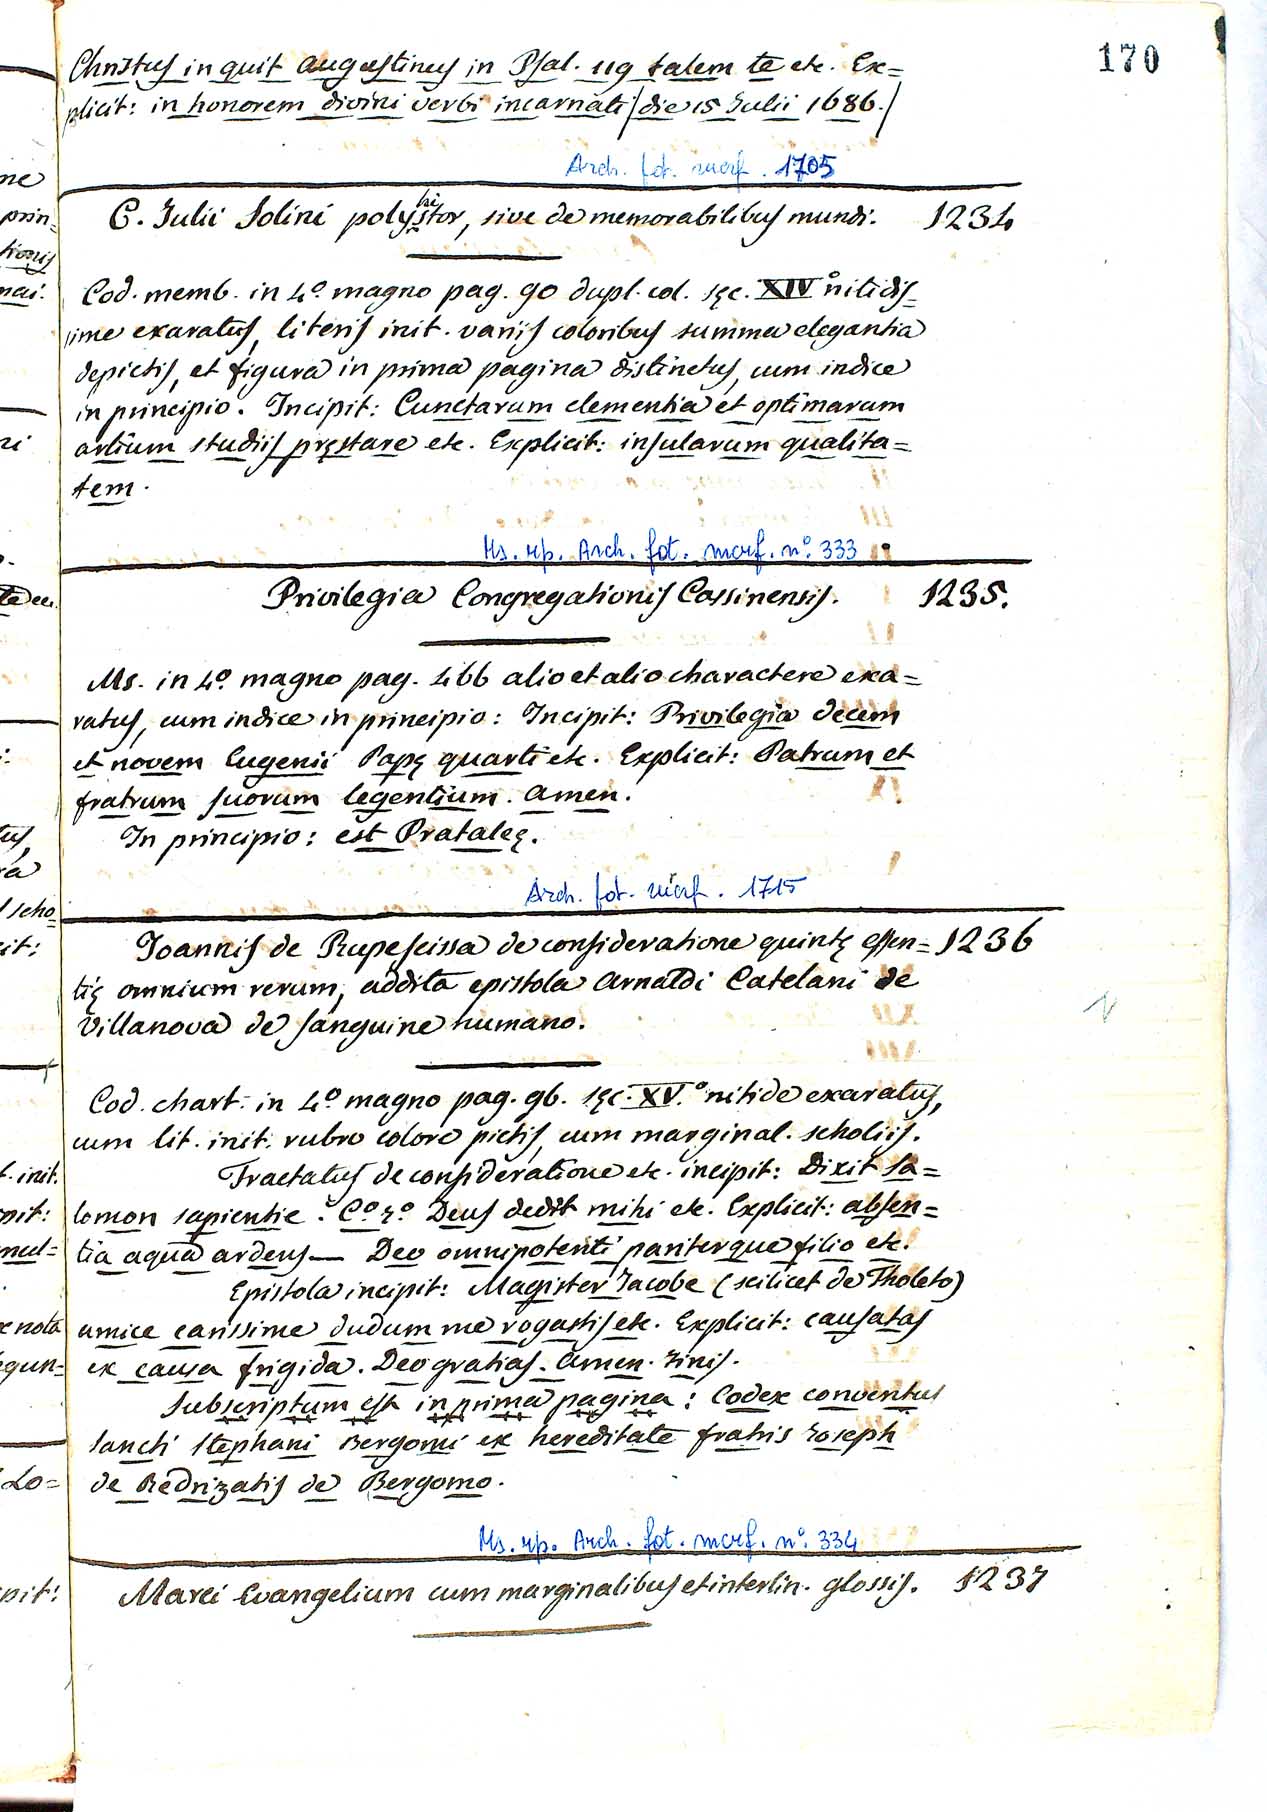 170
Christus inquit Augustinus in Psal. 119 talem te etc. Ex=
plicit: in honorem divini verbi incarnati/die 15 Julii 1686./
Arch. fot. morf. 1705
C. Julii Solini polyhistor, sive de memorabilibus mundi. 1234
Cod. memb. in 4º magno pag. 90 dupl. col. sęc. XIVº nitidis=
sime exaratus, literis init. variis coloribus summa elegantia
depictis, et figura in prima pagina distinctus, cum indice
in principio. Incipit: Cunctarum clementia et optimarum
artium studiis pręstare etc. Explicit: insularum qualita=
tem.
Ms. rp. Arch. fot. morf. nº 333
Privilegia Congregationis Cassinensis. 1235.
Ms. in 4º magno pag. 466 alio et alio charactere exa=
ratus, cum indice in principio: Incipit: Privilegia decem
et novem Eugenii Papę quarti etc. Explicit: Patrum et
fratrum suorum legentium. Amen.
In principio: est Prataleę.
Arch. fot. morf. 1715
Joannis de Rupescissa de consideratione quintę essen= 1236
tię omnium rerum, addita epistola Arnaldi Catelani de
Villanova de sanguine humano.
Cod. chart. in 4º magno pag. 96. sęc. XV.º nitide exaratus,
cum lit. init. rubro colore pictis, cum marginal. scholiis.
Tractatus de consideratione etc. incipit: Dixit Sa=
lomon sapientie. Cº 7º Deus dedit mihi etc. Explicit: absen=
tia aqua ardens — Deo omnipotenti pariterque filio etc.
Epistola incipit: Magister Jacobe (scilicet de Tholeto)
amice carissime dudum me rogastis etc. Explicit: causatas
ex causa frigida. Deo gratias. Amen. Finis.
Subscriptum est in prima pagina: Codex conventus
Sancti Stephani Bergomi ex hereditate fratris Joseph
de Redrizatis de Bergomo.
Ms. rp. Arch. fot. morf. nº 334
Marci Evangelium cum marginalibus et interlin. glossis. 1237